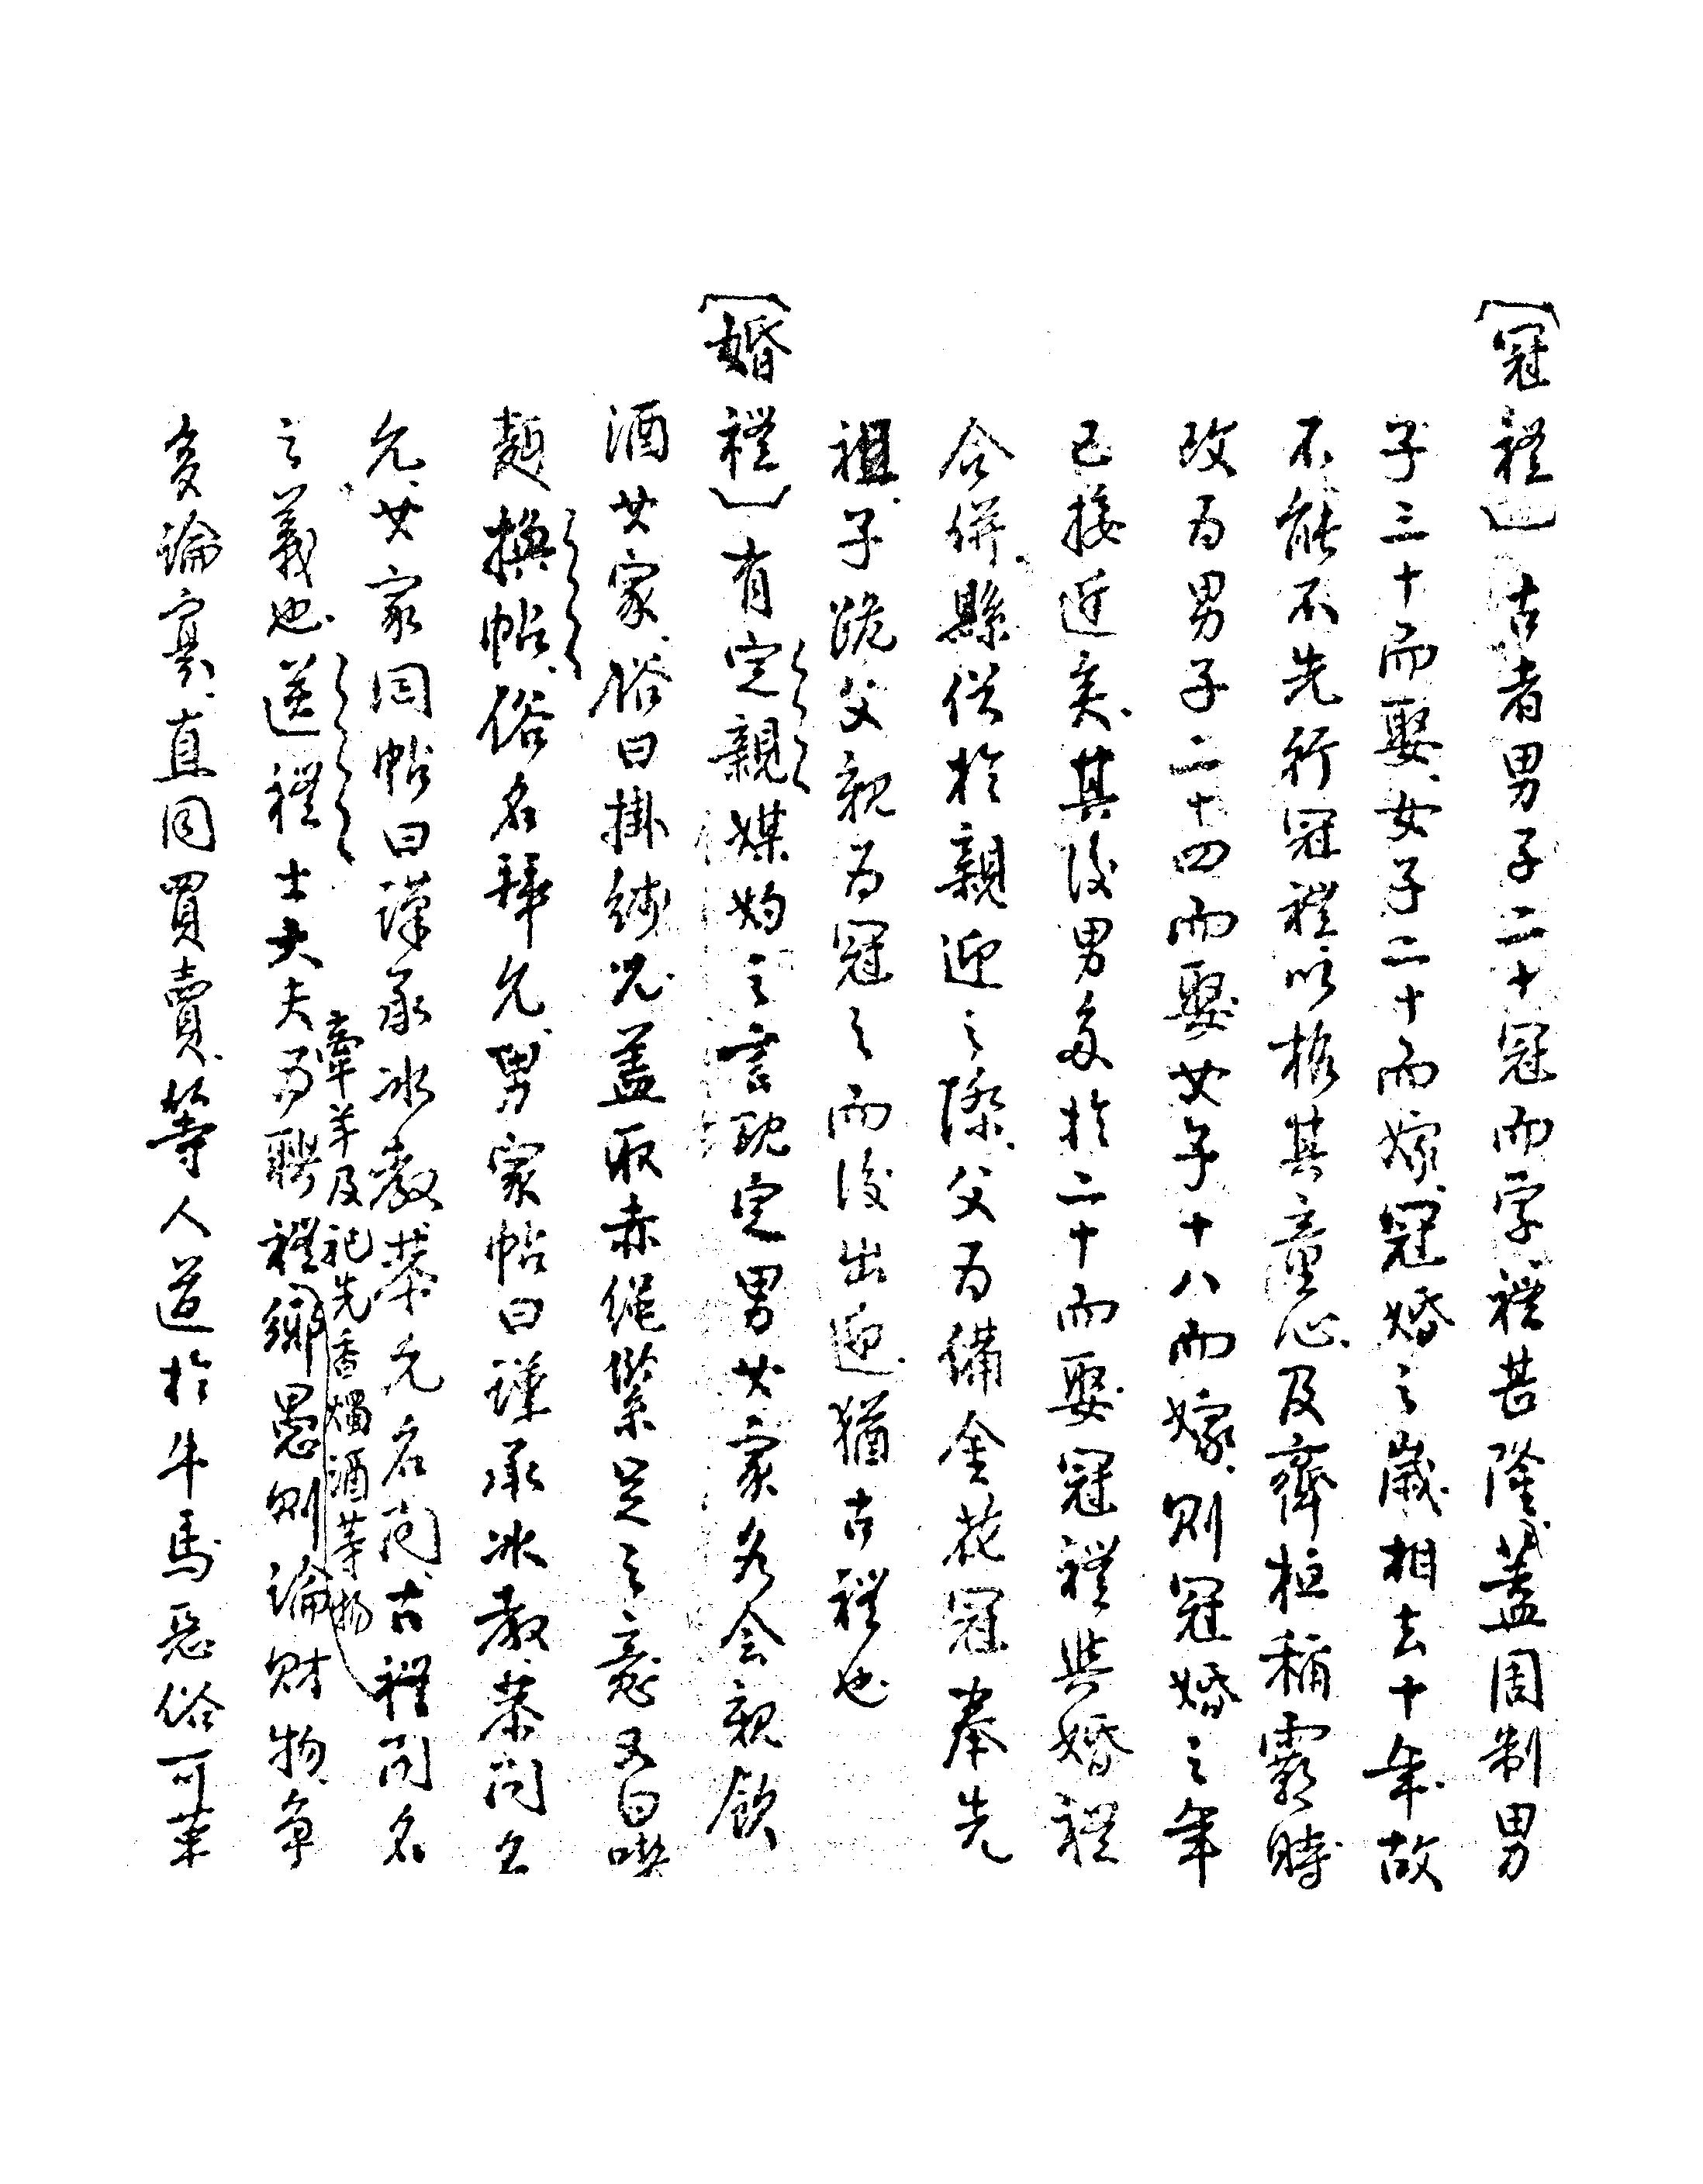 〔冠禮〕古者男子二十冠而字禮甚隆蓋周制男
子三十而娶女子二十而嫁冠婚之歲相去十年故
不能不先行冠禮以格其童心及齊桓稱霸時
改为男子二十四而娶女子十八而嫁則冠婚之年
已接近矣其後男多於二十而娶冠禮與婚禮
合併縣俗於親迎之際父为備金花冠奉先
祖子跪父親为冠之而後出迎猶古禮也
〔婚禮〕有定親媒妁之言既定男女家各会親飲
酒女家俗曰掛紅蓋取赤繩繫足之意又曰喫
麵換帖俗名拜允男家帖曰謹承冰教恭問名
允女家回帖曰謹承冰教恭允名問古禮问名
之義也送禮士大夫为聘禮鄉愚則論財物争
牽羊及祀先香燭酒等物
多論寡直同買賣等人道於牛馬惡俗可革